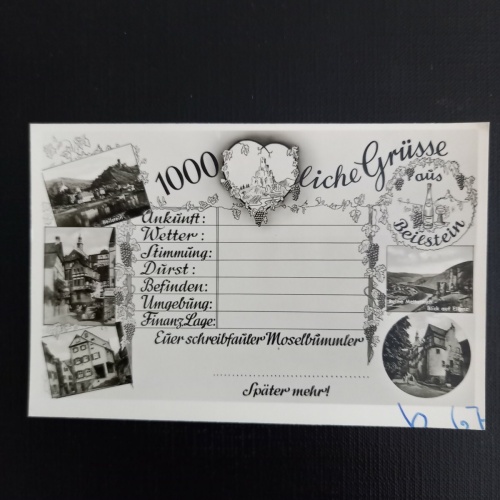 1000 liche Grüsse
aus
Beilstein
Ankunft:
Wetter:
Stimmung:
Durst:
Befinden:
Umgebung:
Finanz Lage:
Euer schreibfauler Moselbummler
Später mehr!
Beilstein